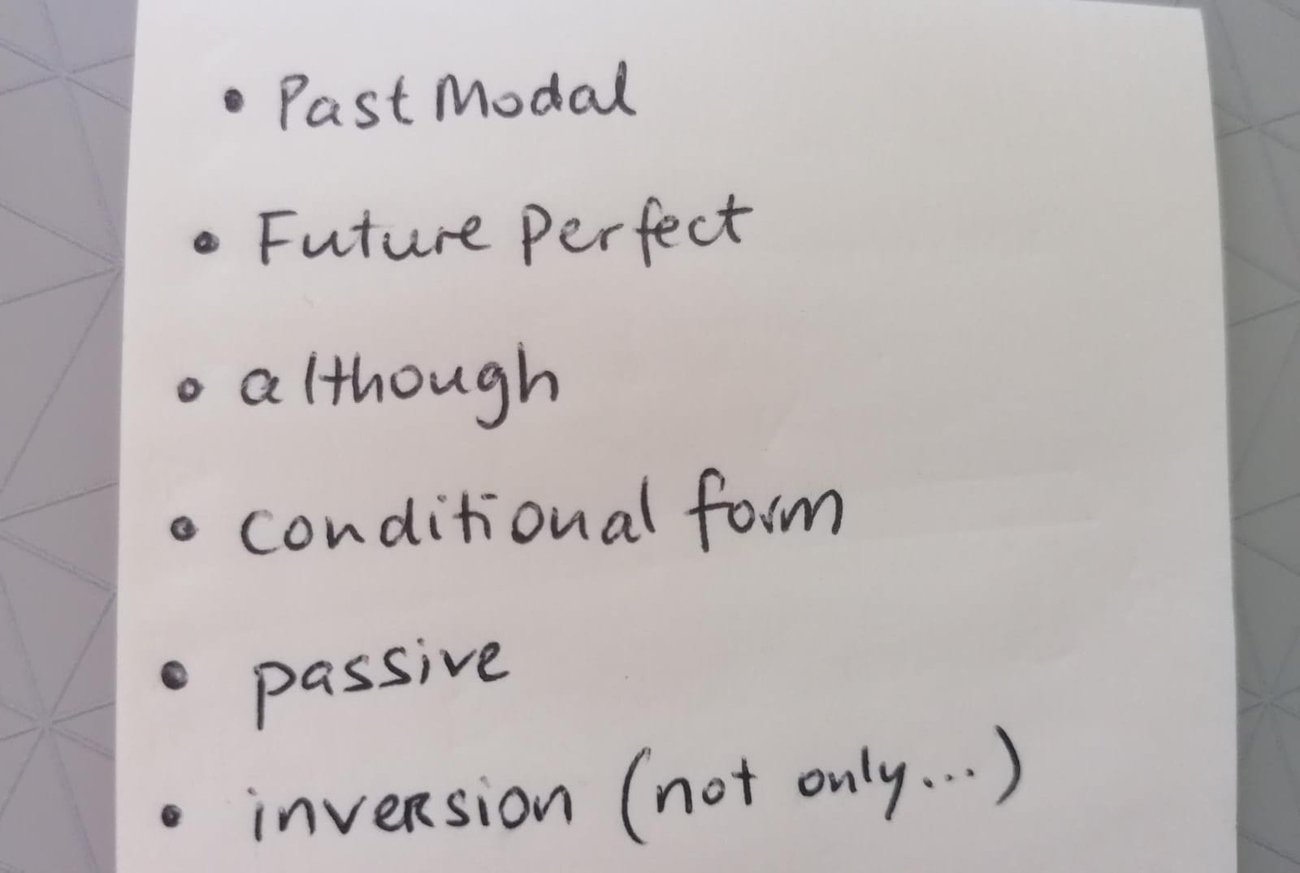 • Past Modal
• Future Perfect
• although
• conditional form
• passive
• inversion (not only...)